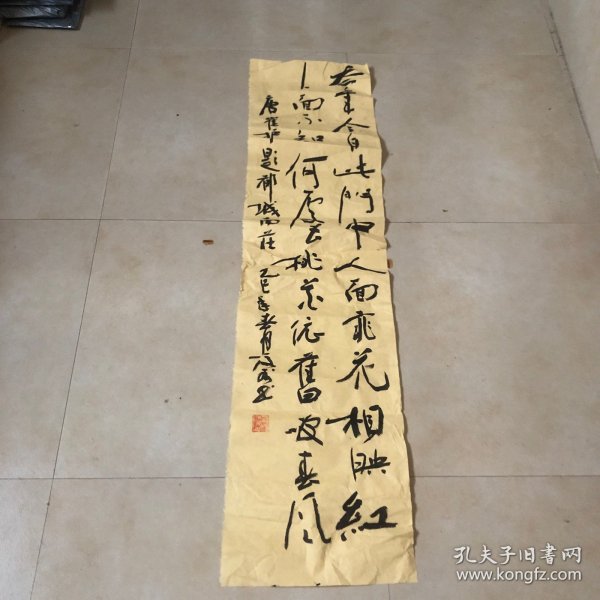 去年今日此門中人面桃花相映紅
人面不知何處去桃花依舊笑春風
唐崔护題都城南莊 乙巳年春月
孔夫子旧書网
www.kongfz.com